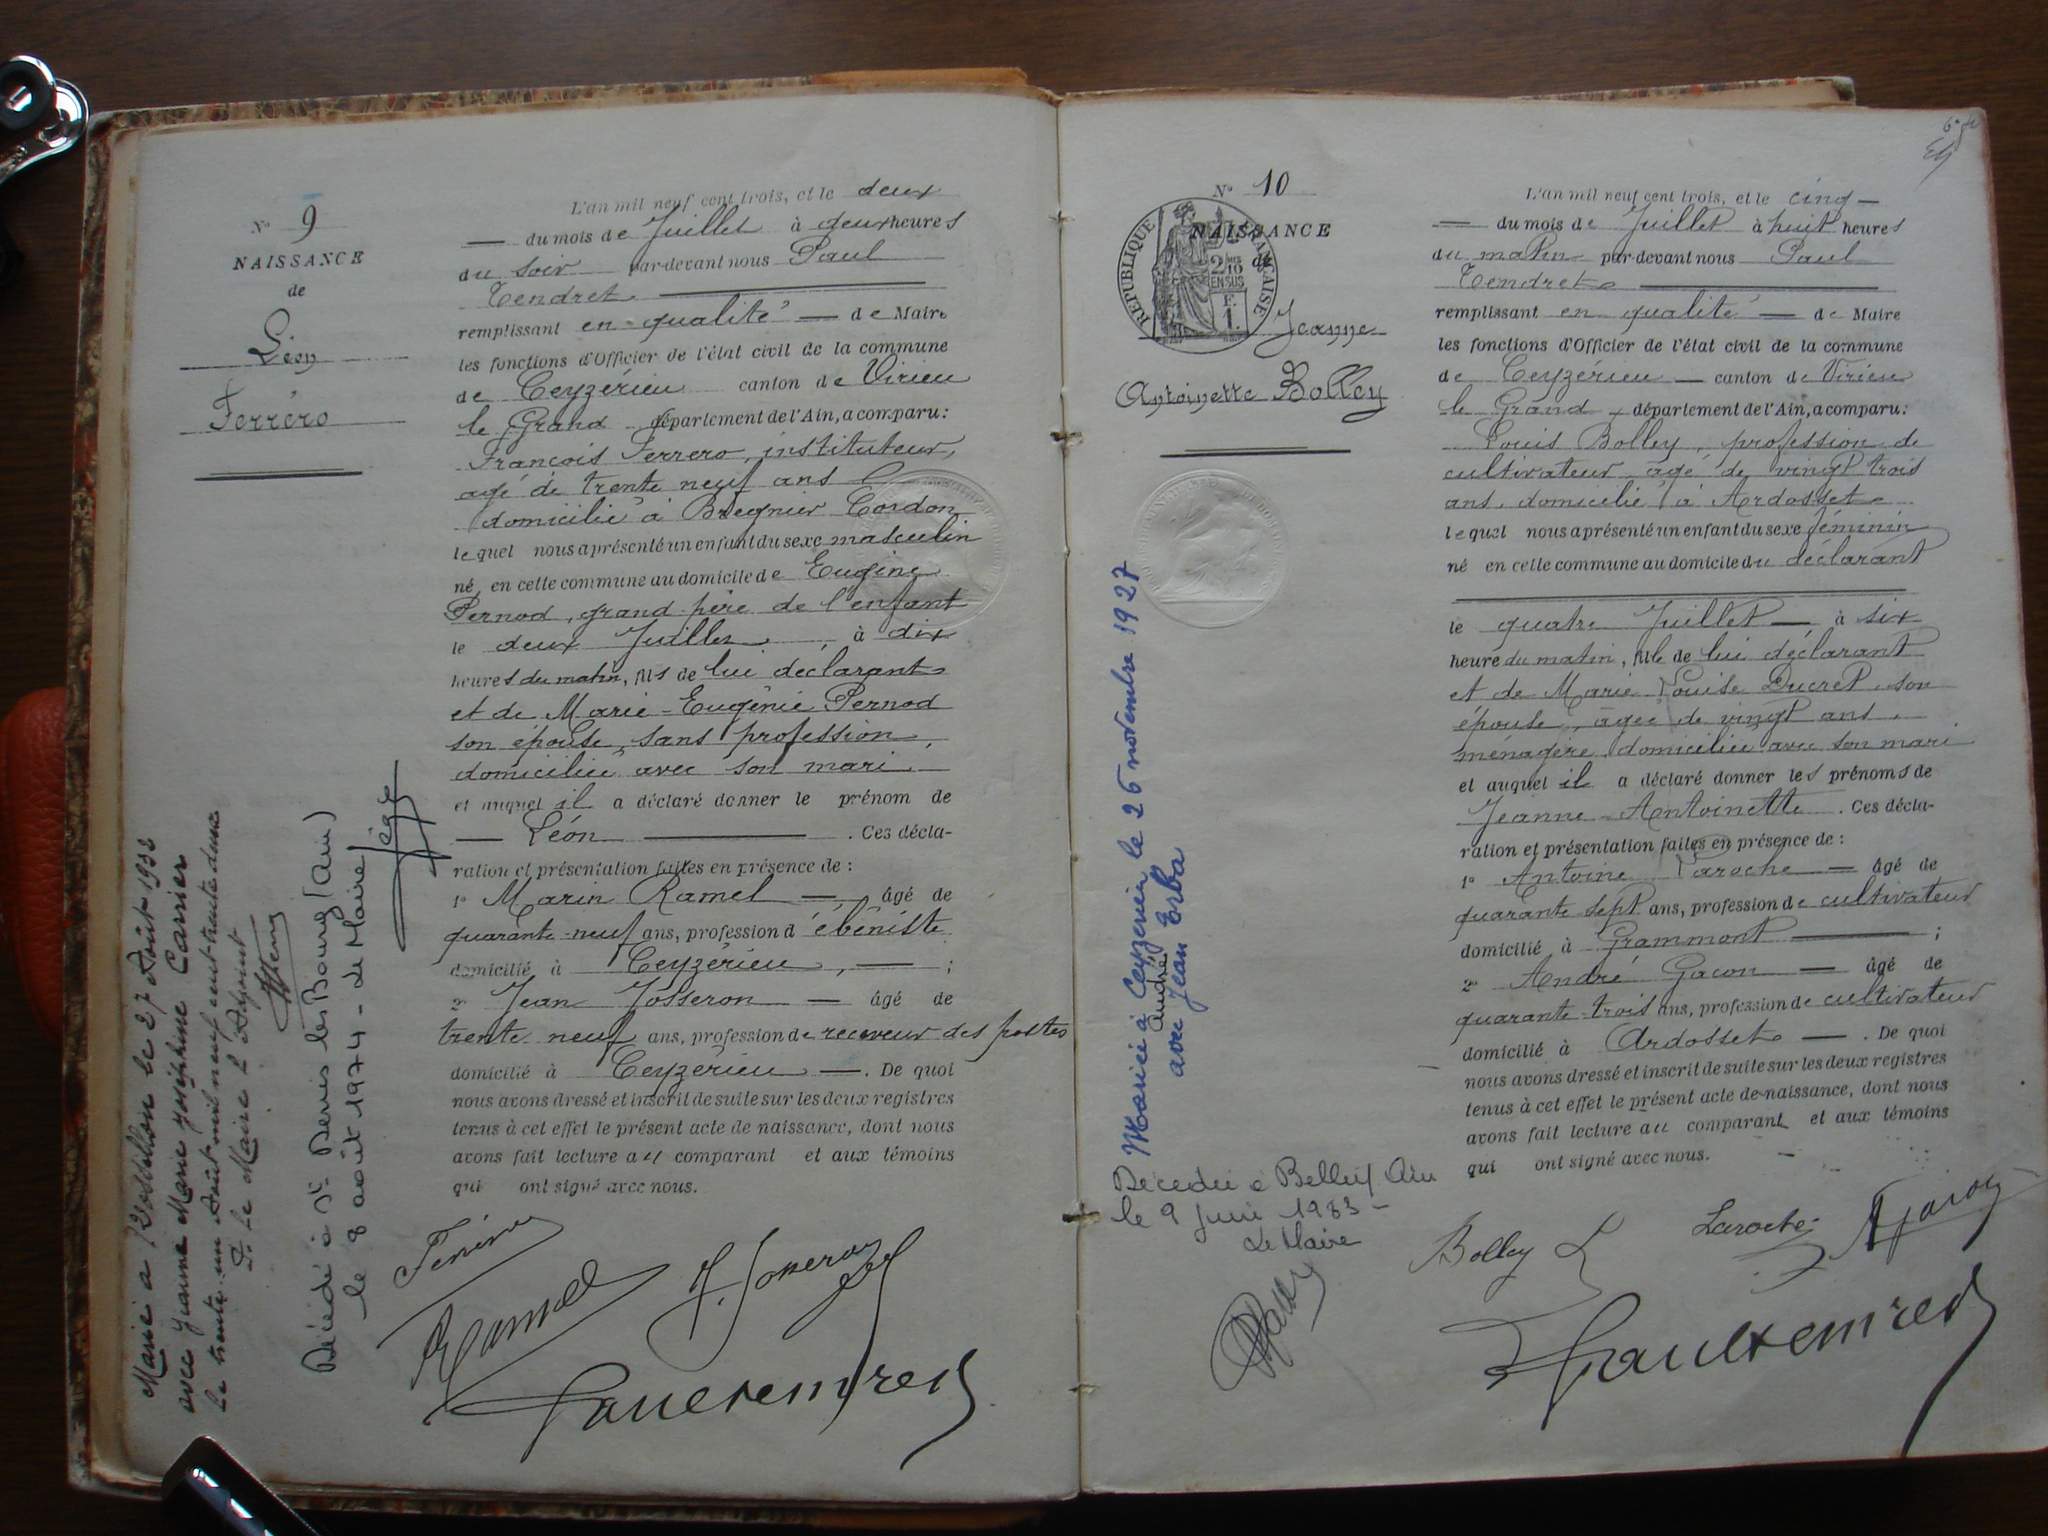 N° 9
NAISSANCE
de
Léon
Ferréro
L'an mil neuf cent trois, et le deux
du mois de Juillet à deux heures
du soir par-devant nous Paul
Tendret
remplissant en qualité de Maire
les fonctions d'Officier de l'état civil de la commune
de Ceyzérieu canton de Virieu
le Grand département de l'Ain, a comparu:
François Ferrero, instituteur,
agé de trente neuf ans
domicilié à Bregnier Cordon
lequel nous a présenté un enfant du sexe masculin
né, en cette commune au domicile de Eugène
Pernod, grand-père de l'enfant
le deux Juillet, à dix
heures du matin, fils de lui déclarant
et de Marie-Eugénie Pernod
son épouse, sans profession,
domiciliée avec son mari.
et auquel il a déclaré donner le prénom de
Léon. Ces décla-
ration et présentation faites en présence de:
1° Marin Ramel, âgé de
quarante-neuf ans, profession d'ébéniste
domicilié à Ceyzérieu, ;
2° Jean Josseron âgé de
trente neuf ans, profession de receveur des postes
domicilié à Ceyzérieu. De quoi
nous avons dressé et inscrit de suite sur les deux registres
tenus à cet effet le présent acte de naissance, dont nous
avons fait lecture au comparant et aux témoins
qui ont signé avec nous.
Marié à le 27 Août 1932
avec Jeanne Marie Joséphine Carrier
Le trente un Août mil neuf cent trente deux
P. le Maire L'Adjoint
Décédé à St Denis les Bourg (Ain)
le 8 août 1974 - Le Maire
Ferrero
J. Josseron
Paul Tendret
N° 10
NAISSANCE
de
REPUBLIQUE FRANÇAISE
2/10 EN SUS
F. 1.
Jeanne
Antoinette Bolley
L'an mil neuf cent trois, et le cinq
du mois de Juillet à huit heures
du matin par-devant nous Paul
Tendret
remplissant en qualité de Maire
les fonctions d'Officier de l'état civil de la commune
de Ceyzérieu canton de Virieu
le Grand département de l'Ain, a comparu:
Louis Bolley, profession de
cultivateur, agé de vingt trois
ans, domicilié à Ardosset
lequel nous a présenté un enfant du sexe féminin
né en cette commune au domicile du déclarant
le quatre Juillet à six
heure du matin, fille de lui déclarant
et de Marie Louise Ducret, son
épouse, agée de vingt ans,
ménagère, domiciliée avec son mari
et auquel il a déclaré donner les prénoms de
Jeanne-Antoinette. Ces décla-
ration et présentation faites en présence de:
1° Antoine Laroche âgé de
quarante sept ans, profession de cultivateur
domicilié à Grammont ;
2° André Gacon âgé de
quarante-trois ans, profession de cultivateur
domicilié à Ardosset. De quoi
nous avons dressé et inscrit de suite sur les deux registres
tenus à cet effet le présent acte de naissance, dont nous
avons fait lecture au comparant et aux témoins
qui ont signé avec nous.
Mariée à Ceyzerieu le 26 novembre 1927
André
avec Jean Erba
Décédée à Belley Ain
le 9 Juin 1983 -
Le Maire
Bolley L
Laroche
A Gacon
Paul Tendret